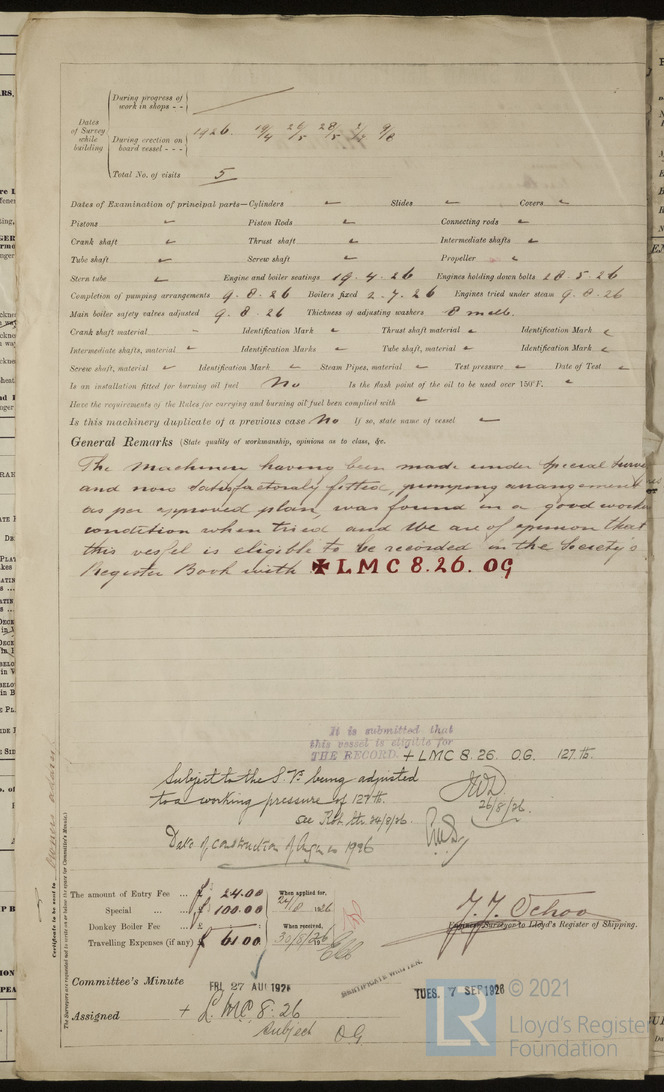 During progress of
work in shops - -
Dates
of Survey
while
building
During erection on
board vessel - - -
1926. 19/4 26/5 28/5 2/7 9/8
Total No. of visits 5
Dates of Examination of principal parts—Cylinders Slides Covers
Pistons Piston Rods Connecting rods
Crank shaft Thrust shaft Intermediate shafts
Tube shaft Screw shaft Propeller
Stern tube Engine and boiler seatings 19.4.26 Engines holding down bolts 28.5.26
Completion of pumping arrangements 9.8.26 Boilers fixed 2.7.26 Engines tried under steam 9.8.26
Main boiler safety valves adjusted 9.8.26 Thickness of adjusting washers 8 mell.
Crank shaft material Identification Mark Thrust shaft material Identification Mark
Intermediate shafts, material Identification Marks Tube shaft, material Identification Mark
Screw shaft, material Identification Mark Steam Pipes, material Test pressure Date of Test
Is an installation fitted for burning oil fuel No Is the flash point of the oil to be used over 150°F.
Have the requirements of the Rules for carrying and burning oil fuel been complied with
Is this machinery duplicate of a previous case No If so, state name of vessel
General Remarks (State quality of workmanship, opinions as to class, &c.
The Machinery having been made under Special Surve
and now satisfactoraly fitted, pumping arrangement
as per approved plan, was found in a good workin
condition when tried and We are of opinion that
this vessel is eligible to be recorded in the Society's
Register Book with ✠ LMC 8.26. OG
It is submitted that
this vessel is eligible for
THE RECORD. + LMC 8.26. O.G. 127 lb.
Subject to the S.Vs. being adjusted
to a working pressure of 127 lb.
26/8/26.
Date of construction of Engines 1926
The amount of Entry Fee ... £ 24.00 When applied for.
Special ... ... £ 100.00 1926
Donkey Boiler Fee ... £ When received.
Travelling Expenses (if any) £ 61.00 30/8/1926
J. J. Ochoa
Engineer Surveyor to Lloyd's Register of Shipping.
Certificate to be sent to
The Surveyors are requested not to write on or below the space for Committee's Minute.
Committee's Minute FRI. 27 AUG 1926
CERTIFICATE WRITTEN.
TUES. 7 SEP 1926
Assigned + LMC 8.26
Subject O.G.
© 2021
LR
Lloyd's Register
Foundation